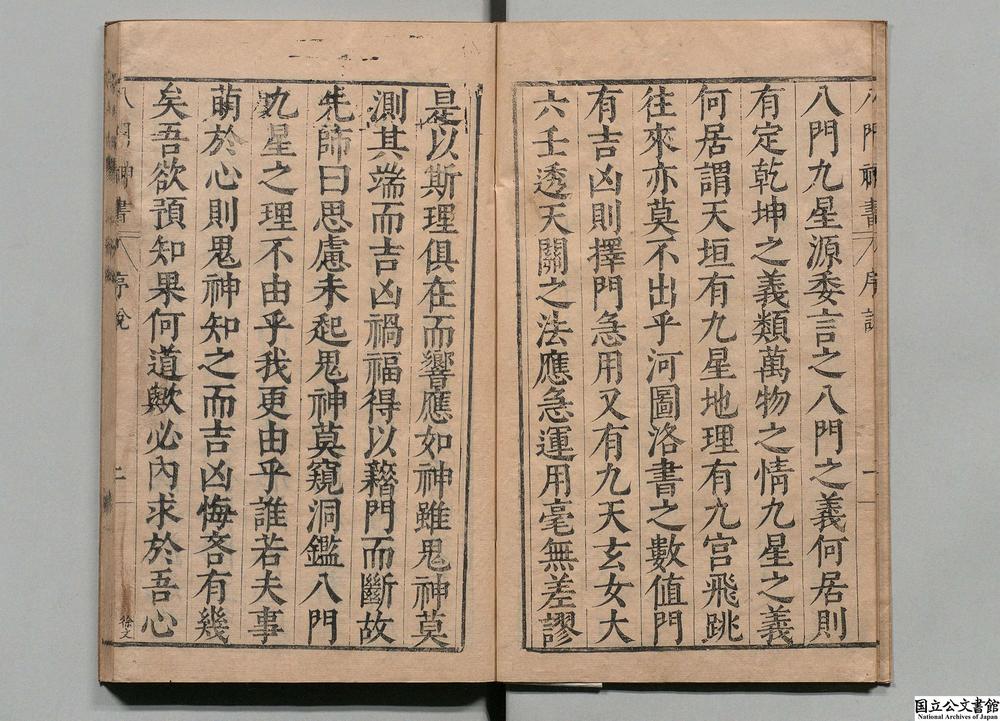 八門九星源委言之八門之義何居則
有定乾坤之義類萬物之情九星之義
何居謂天垣有九星地理有九宮飛跳
往來亦莫不出乎河圖洛書之數值門
有吉凶則擇門急用又有九天玄女大
六壬透天關之法應急運用毫無差謬
是以斯理俱在而響應如神雖鬼神莫
測其端而吉凶禍福得以藉門而斷故
先師曰思慮未起鬼神莫窺洞鑑八門
九星之理不由乎我更由乎誰若夫事
萌於心則鬼神知之而吉凶悔吝有幾
矣吾欲預知果何道歟必內求於吾心
八門神書
序說
二
徐文
国立公文書館
National Archives of Japan